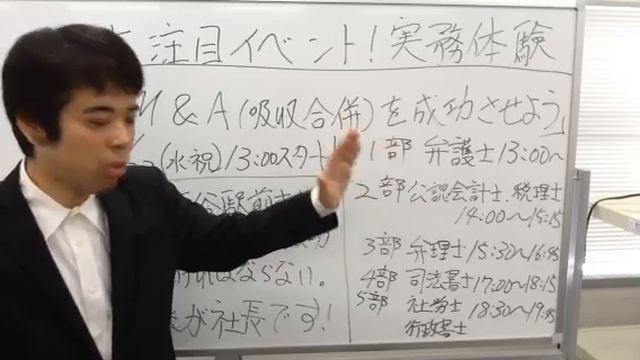 注目イベント!実務体験
M&A(吸収合併)を成功させよう」
(水・祝)13:00スタート
1部 弁護士13:00~
2部 公認会計士・税理士
14:00~15:15
3部 弁理士 15:30~16:45
4部 司法書士 17:00~18:15
5部 社労士 18:30~19:45
行政書士
谷駅前
ればならない。
が社長です!